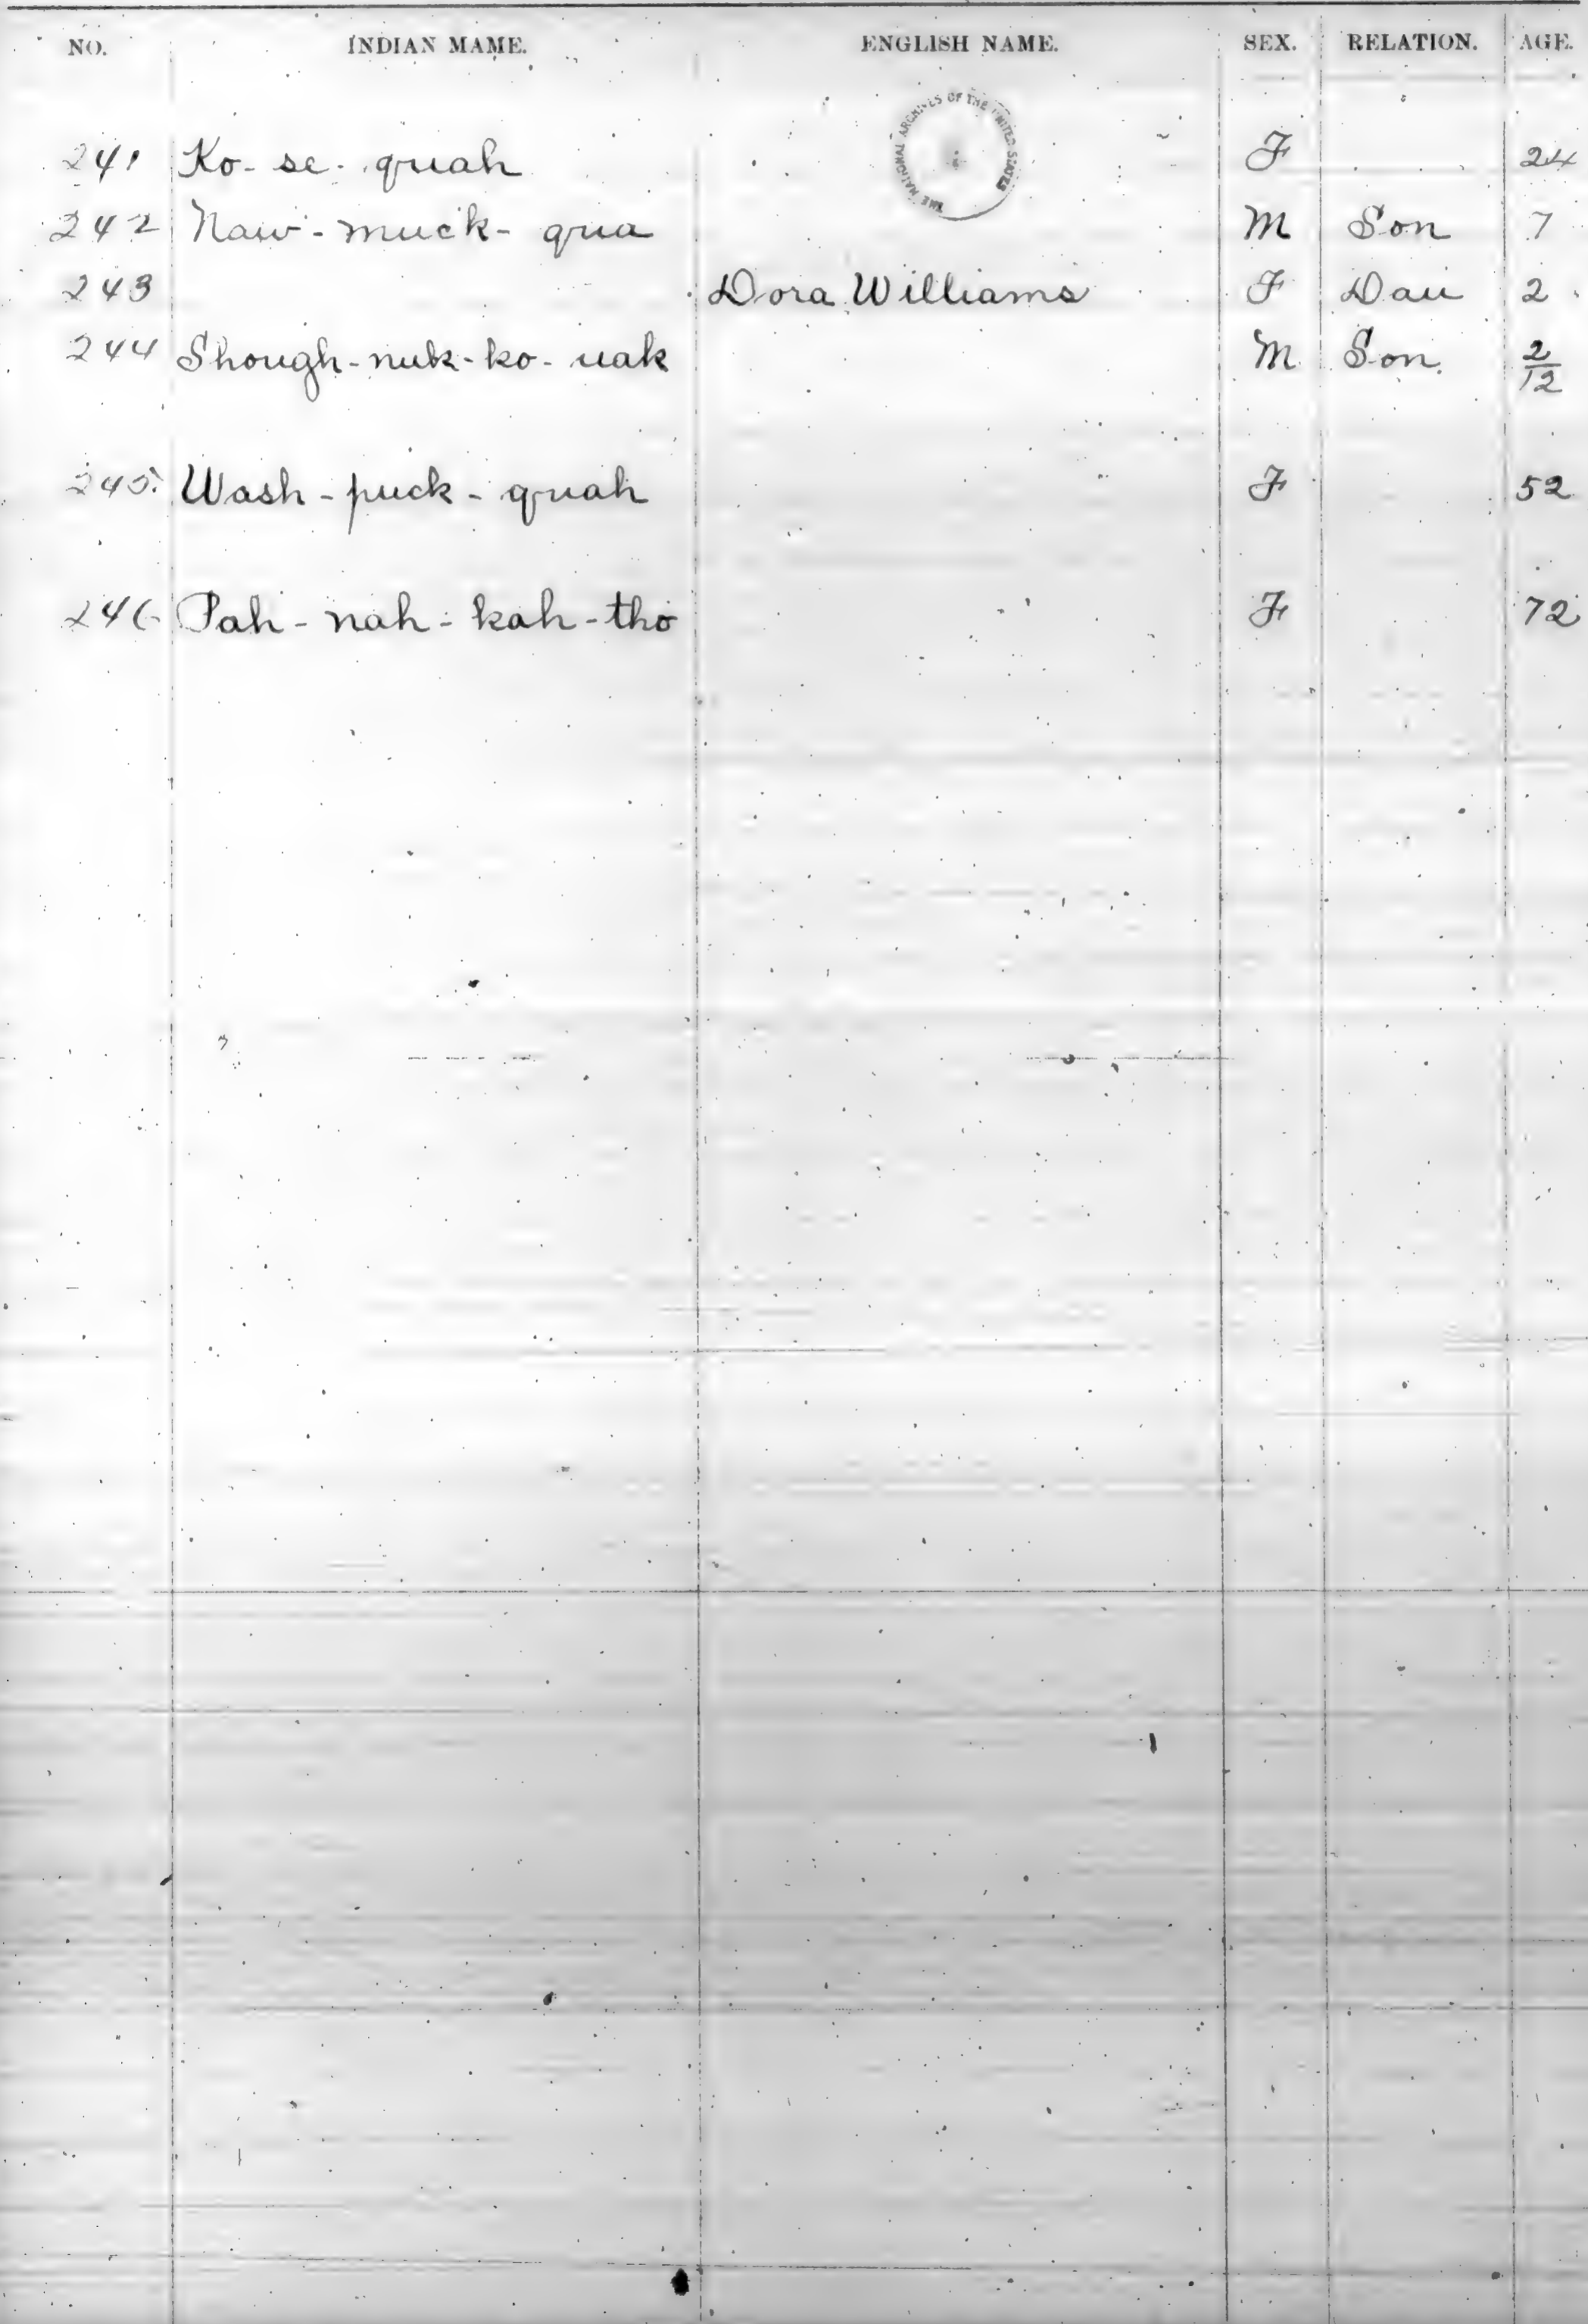 NO. INDIAN MAME. ENGLISH NAME. SEX. RELATION. AGE.
THE NATIONAL ARCHIVES OF THE UNITED STATES
241 Ko-se-quah F 24
242 Naw-muck-qua M Son 7
243 Dora Williams F Dau 2
244 Shough-nuk-ko-uak M Son. 2/12
245. Wash-puck-quah F 52
246 Pah-nah-kah-tho F 72